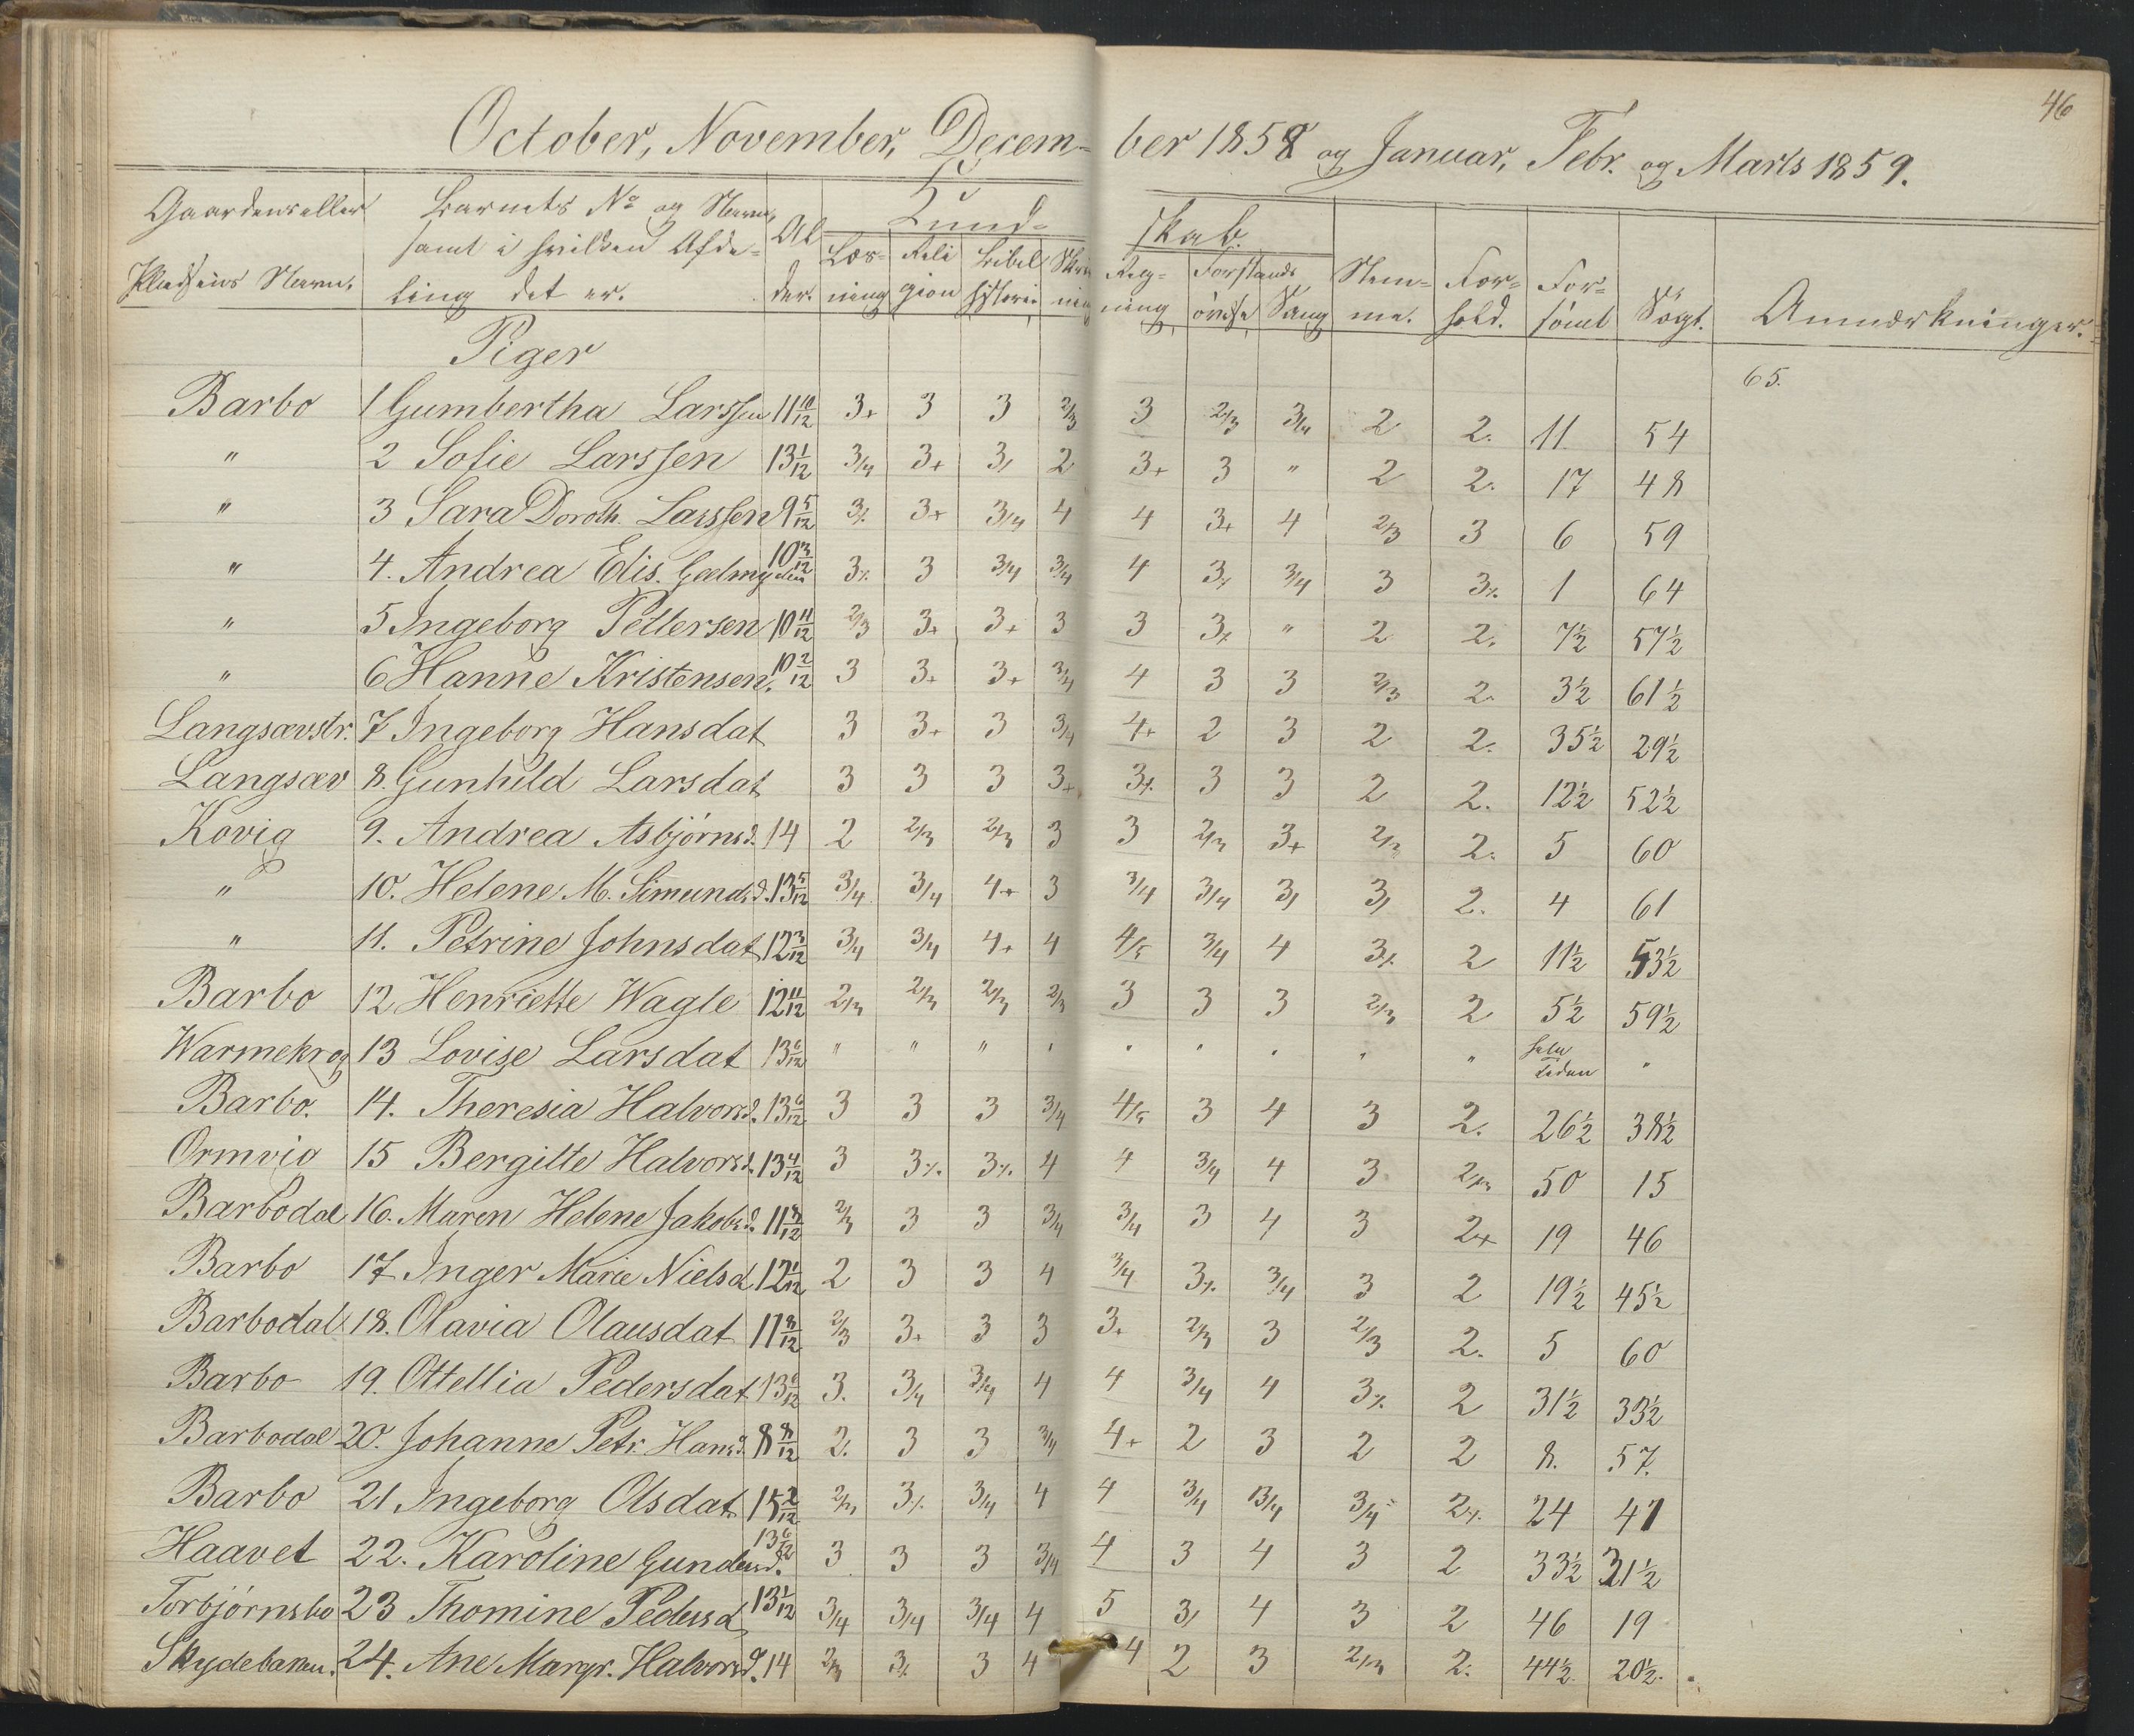 46
October, November, December 1858 og Januar, Febr. og Marts 1859.
Gaardens eller Pladsens Navn. Barnets No og Navn, samt i hvilken Afdeling det er. Alder. Kundskab. Læsning Religion Bibelhistorie Skrivning Regning Forstandsøvelse Sang Stemme. Forhold. Forsømt Søgt. Anmærkninger.
Piger
65.
Barbo 1 Gumbertha Larssen 11 10/12 3+ 3 3 2/3 3 2/3 3/4 2 2. 11 54
" 2 Sofie Larssen 13 1/12 3/4 3+ 3/ 2 3+ 3 " 2 2. 17 48
" 3 Sara Doroth. Larssen 9 5/12 3% 3+ 3/4 4 4 3+ 4 2/3 3 6 59
" 4. Andrea Elis. 10 3/12 3% 3 3/4 3/4 4 3% 3/4 3 3% 1 64
" 5 Ingeborg Pettersen 10 11/12 2/3 3+ 3+ 3 3 3% " 2 2. 7½ 57½
" 6 Hanne Kristensen. 10 2/12 3 3+ 3+ 3/4 4 3 3 2/3 2. 3½ 61½
Langsævstr. 7 Ingeborg Hansdat 3 3+ 3 3/4 4+ 2 3 2 2. 35½ 29½
Langsæv 8. Gunhild Larsdat 3 3 3 3+ 3% 3 3 2 2. 12½ 52½
Kovig 9. Andrea Asbjørnsd. 14 2 2/3 2/3 3 3 2/3 3+ 2/3 2. 5 60
" 10. Helene M. Simunds.d. 13 5/12 3/4 3/4 4+ 3 3/4 3/4 3/ 3/ 2. 4 61
" 11. Petrine Johnsdat 12 3/12 3/4 3/4 4+ 4 4/5 3/4 4 3% 2 11½ 53½
Barbo 12 Henriette Wagle 12 11/12 2/3 2/3 2/3 2/3 3 3 3 2/3 2 5½ 59½
Warmekrog 13 Lovise Larsdat 13 6/12 " " " " " " " " " hele Tiden "
Barbo. 14. Theresia Halvorsd. 13 6/12 3 3 3 3/4 4/5 3 4 3 2. 26½ 38½
Ormvig 15 Bergitte Halvorsd. 13 4/12 3 3% 3% 4 4 3/4 4 3 2/3 50 15
Barbodal 16. Maren Helene Jakobsd. 11 8/12 2/3 3 3 3/4 3/4 3 4 3 2+ 19 46
Barbo 17 Inger Marie Nielsd 12 1/12 2 3 3 4 3/4 3% 3/4 3 2 19½ 45½
Barbodal 18. Olavia Olausdat 11 8/12 2/3 3+ 3 3 3+ 2/3 3 2/3 2. 5 60
Barbo 19. Ottellia Pedersdat 13 6/12 3. 3/4 3/4 4 4 3/4 4 3% 2 31½ 33½
Barbodal 20. Johanne Petr. Hansd. 8 8/12 2. 3 3 3/4 4+ 2 3 2 2 8. 57.
Barbo 21 Ingeborg Olsdat 15 2/12 2/3 3% 3/4 4 4 3/4 3/4 3/4 2% 24 41
Haavet 22. Karoline Gundersd. 13 6/12 3 3 3 3/4 4 3 4 3 2 33½ 31½
Torbjørnsbo 23 Thomine Pedersd 13 1/12 3/4 3/4 3/4 4 5 3/ 4 3 2 46 19
Skydebanen. 24. Ane Margr. Halvorsd. 14 2/3 3% 3 4 4 2 3 2/3 2. 44½ 20½.